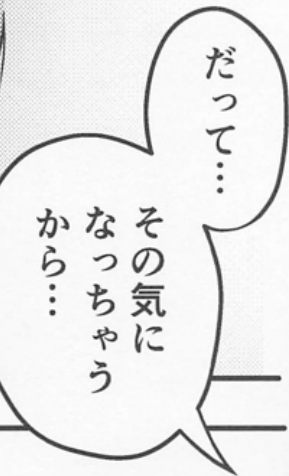 だって…
その気に
なっちゃう
から…